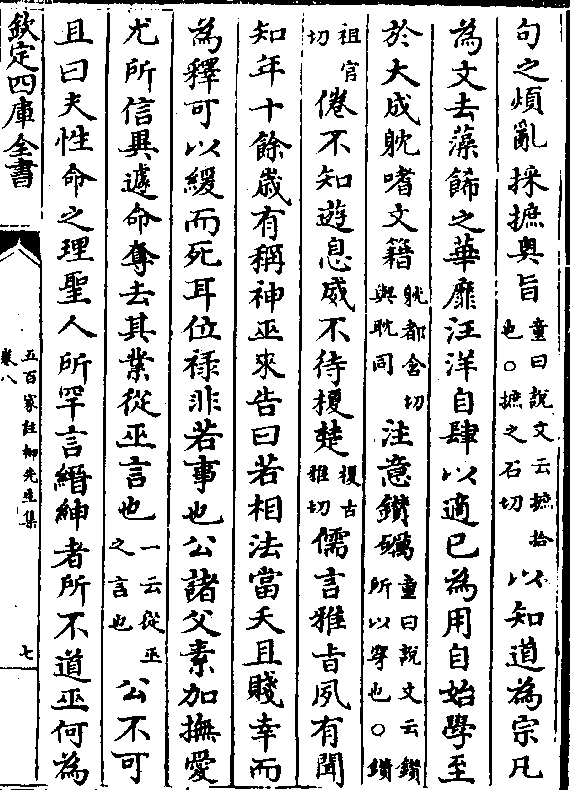 句之煩亂採摭奥旨童曰說文云摭拾也○摭之石切以知道為宗凡
為文去藻飾之華靡汪洋自肆以適已為用自始學至
於大成耽嗜文籍躭都含切與耽同注意鑽礪童曰說文云鑽所以穿也○鑽
祖官切倦不知遊息威不待榎楚榎古雅切儒言雅旨夙有聞
知年十餘歲有稱神巫來告曰若相法當夭且賤幸而
為釋可以緩而死耳位祿非若事也公諸父素加撫愛
尤所信異遽命奪去其業從巫言也一云從巫之言也公不可
且曰夫性命之理聖人所罕言縉紳者所不道巫何為
欽定四庫全書
五百家註柳先生集
卷八
七